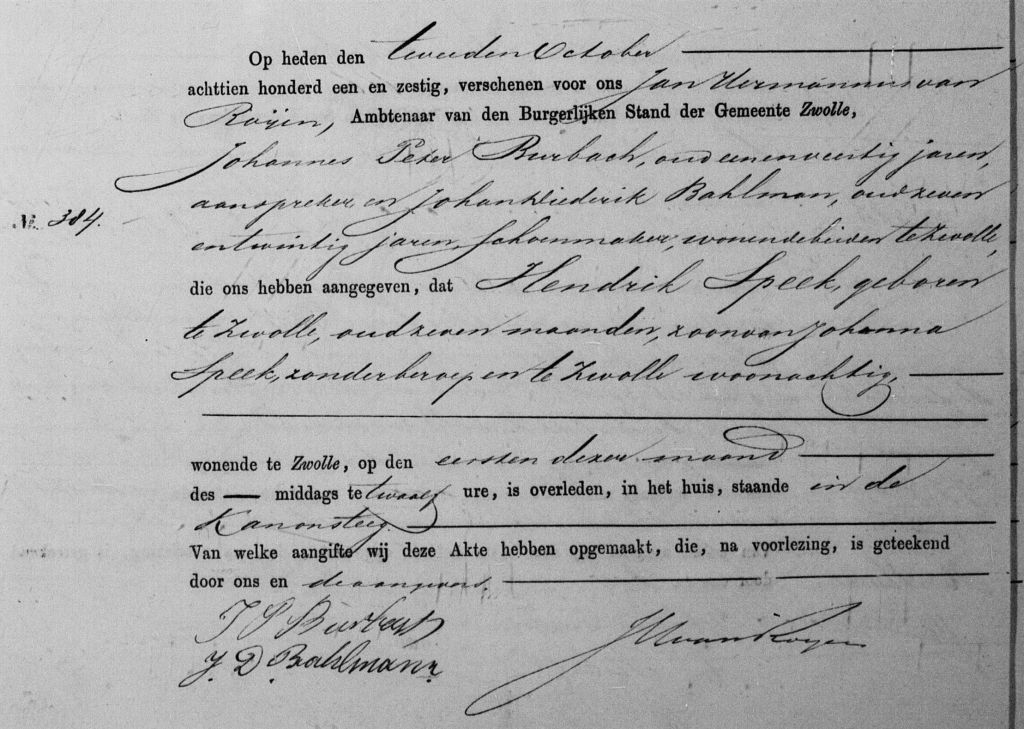 Op heden den tweeden October
achttien honderd een en zestig, verschenen voor ons Jan Hermannus van
Roijen, Ambtenaar van den Burgerlijken Stand der Gemeente Zwolle,
Johannes Peter Burbach, oud eenenveertig jaren,
aanspreker en Johan Diederik Bahlman, oud zeven
No. 384.
entwintig jaren, Schoenmaker, wonende beiden te Zwolle,
die ons hebben aangegeven, dat Hendrik Speek, geboren
te Zwolle, oud zeven maanden, zoon van Johanna
Speek, zonder beroep en te Zwolle woonachtig,
wonende te Zwolle, op den eersten dezer maand
des — middags te twaalf ure, is overleden, in het huis, staande in de
Kanonsteeg.
Van welke aangifte wij deze Akte hebben opgemaakt, die, na voorlezing, is geteekend
door ons en de aangevers,
J P Burbach
J. D. Bahlmann
JHvanRoijen